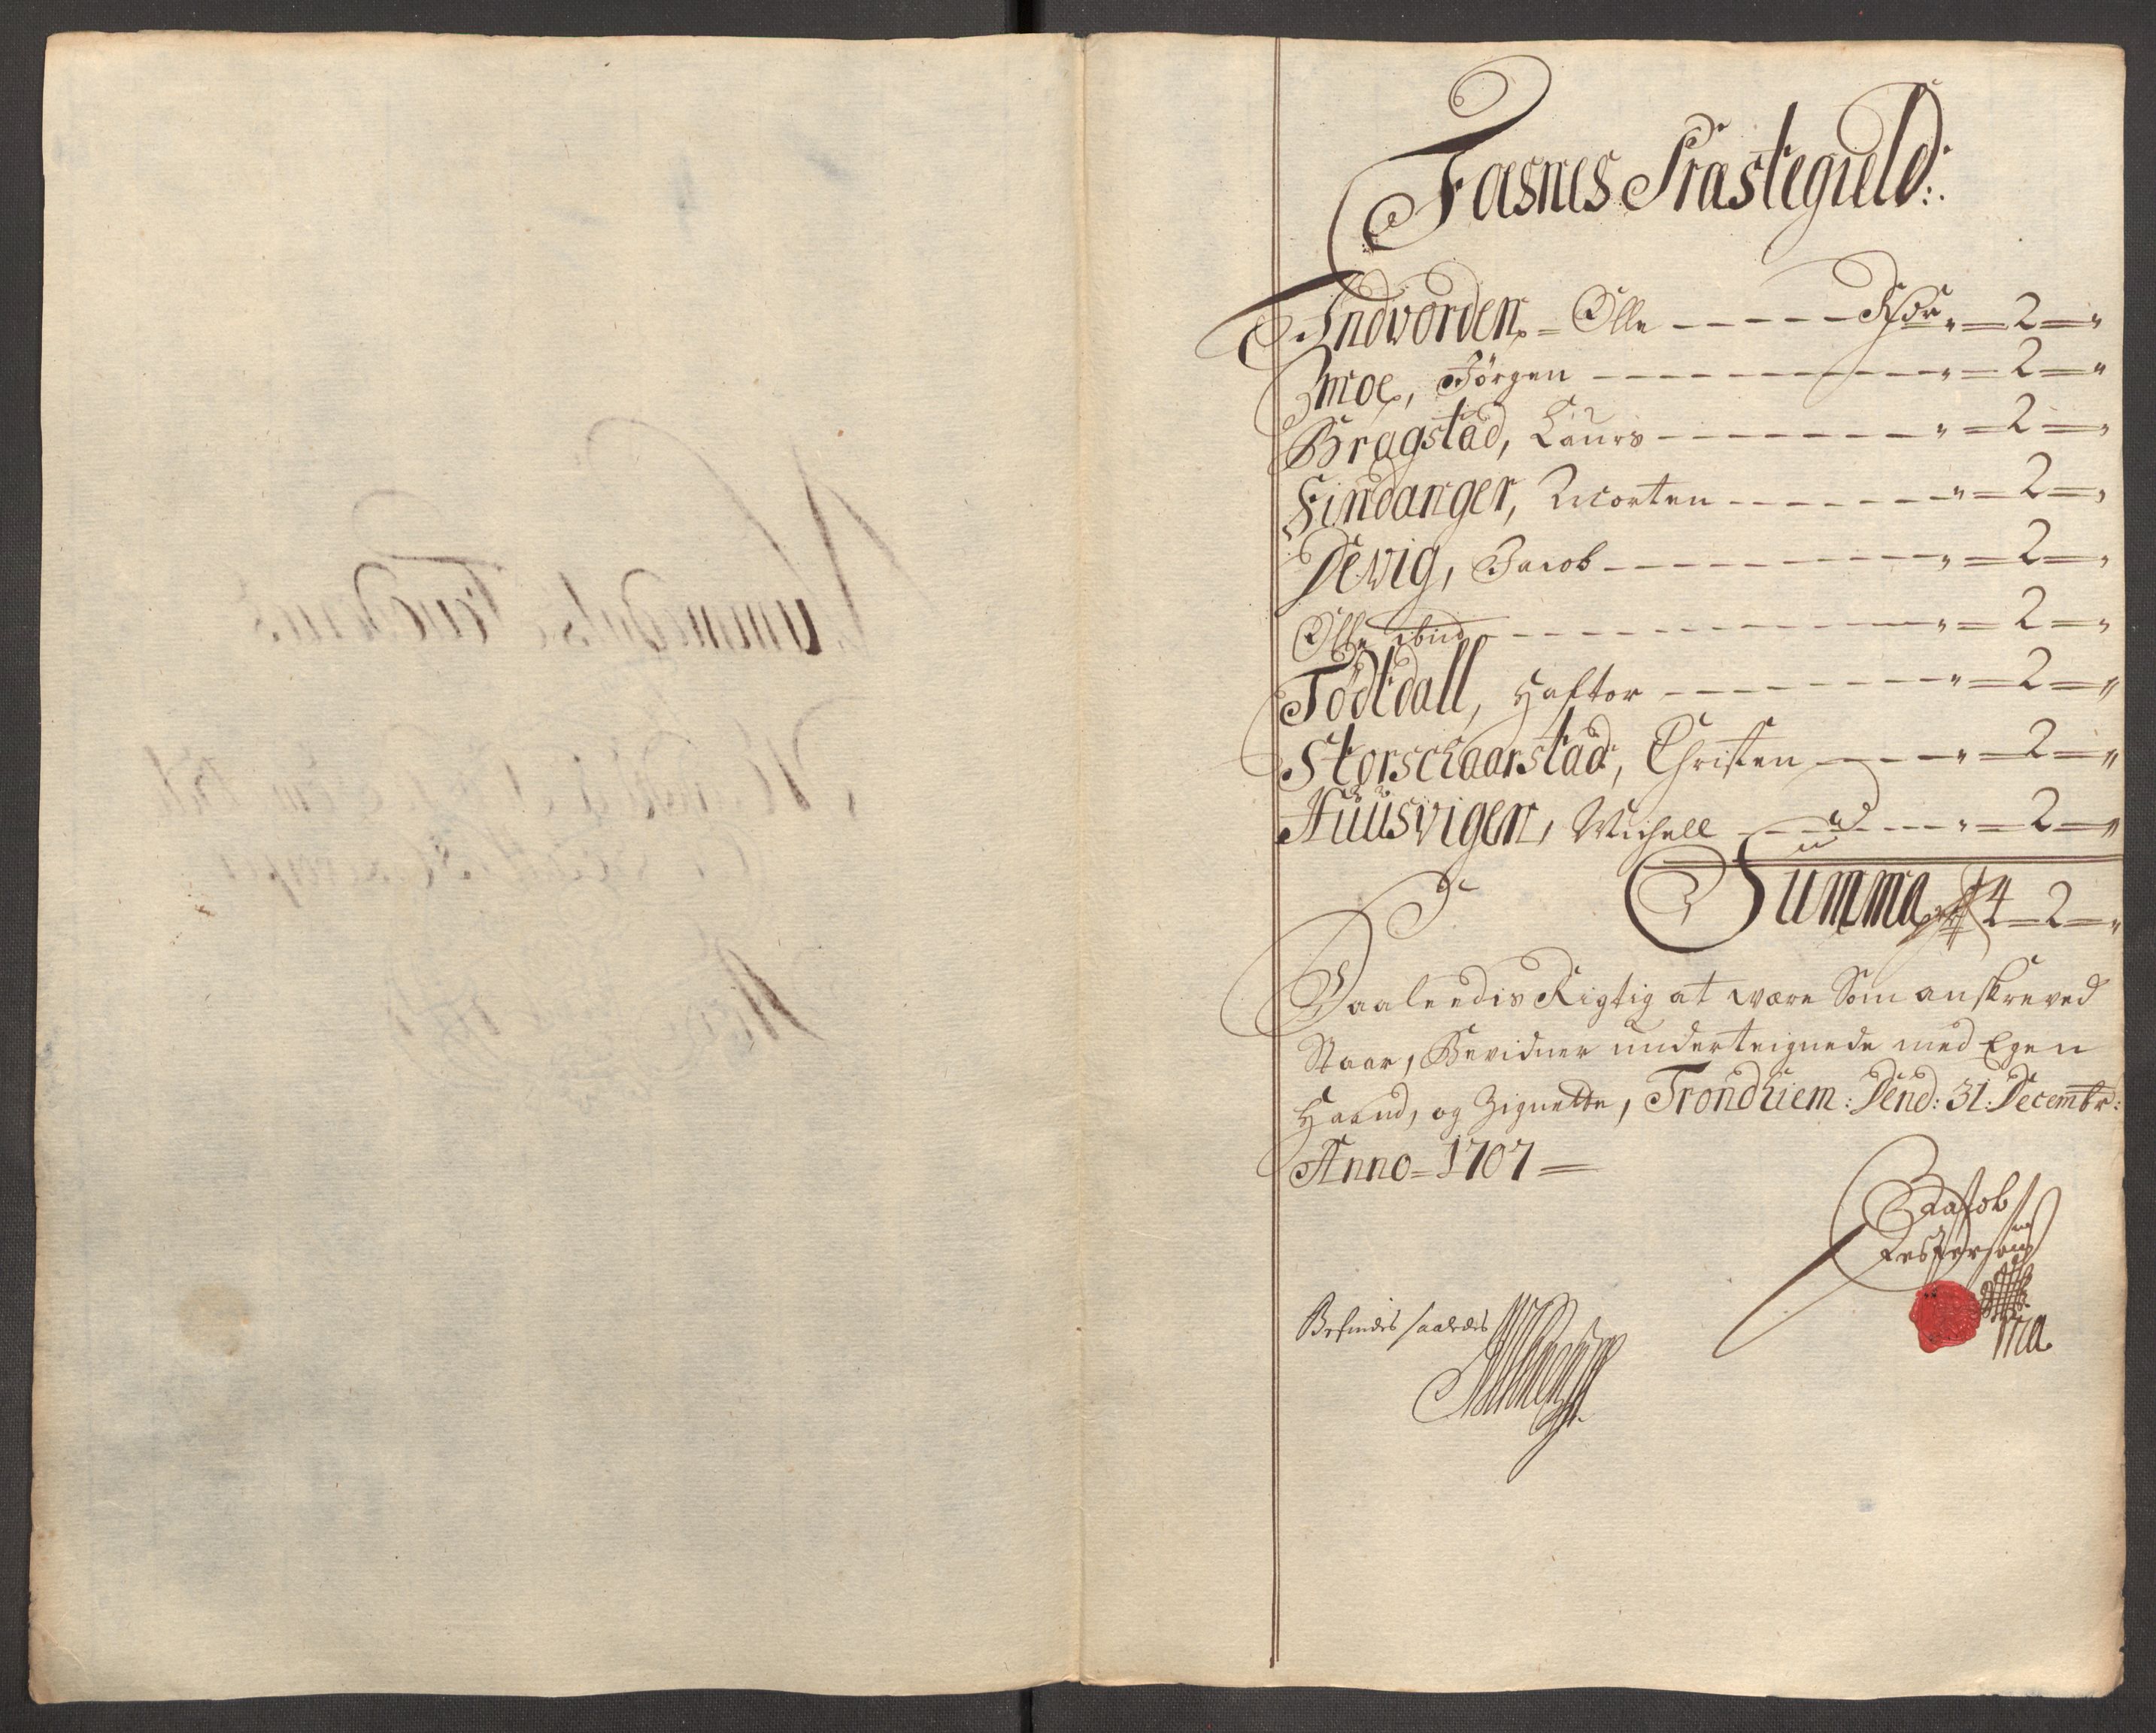 Fosnes Præstegield:
Indvorden = Olle — — — 2 —
Moe, Jörgen — — — 2 — "
Bragstad, Laurs — — — 2 — "
Findanger, Morten — — — 2 — "
Devig, Jacob — — — 2 — "
Olle ibid — — — 2 — "
Tödtdall, Haftor — — — 2 — "
Storschaarstad, Christen — — — 2 — "
Huusvigen, Michell — — — 2 — "
Summa 4 — 2 — "
Saaleedis Rigtig at være Som anskreved
Staar, Bevidner underteignede med Egen
Haand, og Zignette, Trondhiem: Dend: 31: Decembr:
Anno = 1707 —
Jacob
Jespersen
ma
Befindes saaledes